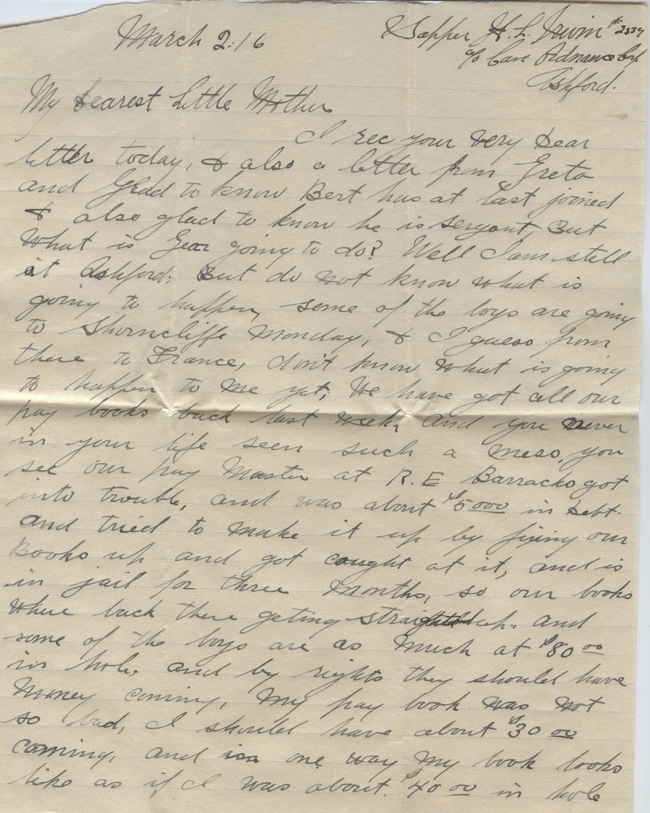 March 2.16
Sapper H. L. Irwin #2337
c/o Can Ordnance Corp
Ashford.
My Dearest Little Mother
I rec your very dear
letter today, & also a letter from Greta
and Glad to know Bert has at last joined
& also glad to know he is sergant But
What is Geo going to do? Well I am still
at Ashford. But do not know what is
going to happen, some of the boys are going
to Shorncliffe Monday, & I guess from
there to France, don't know what is going
to happen to me yet, We have got all our
pay books back last week, and you never
in your life seen such a mess, you
see our pay Master at R.E Barracks got
into trouble, and was about $5000 in debt.
and tried to make it up by fixing our
Books up and got caught at it, and is
in jail for three months, so our books
where back there geting straightend up. and
some of the boys are as much at $80 00
in hole, and by rights they should have
Money coming, My pay book was not
so bad, I should have about $30 00
coming, and in one way my book looks
like as if I was about $40 00 in hole